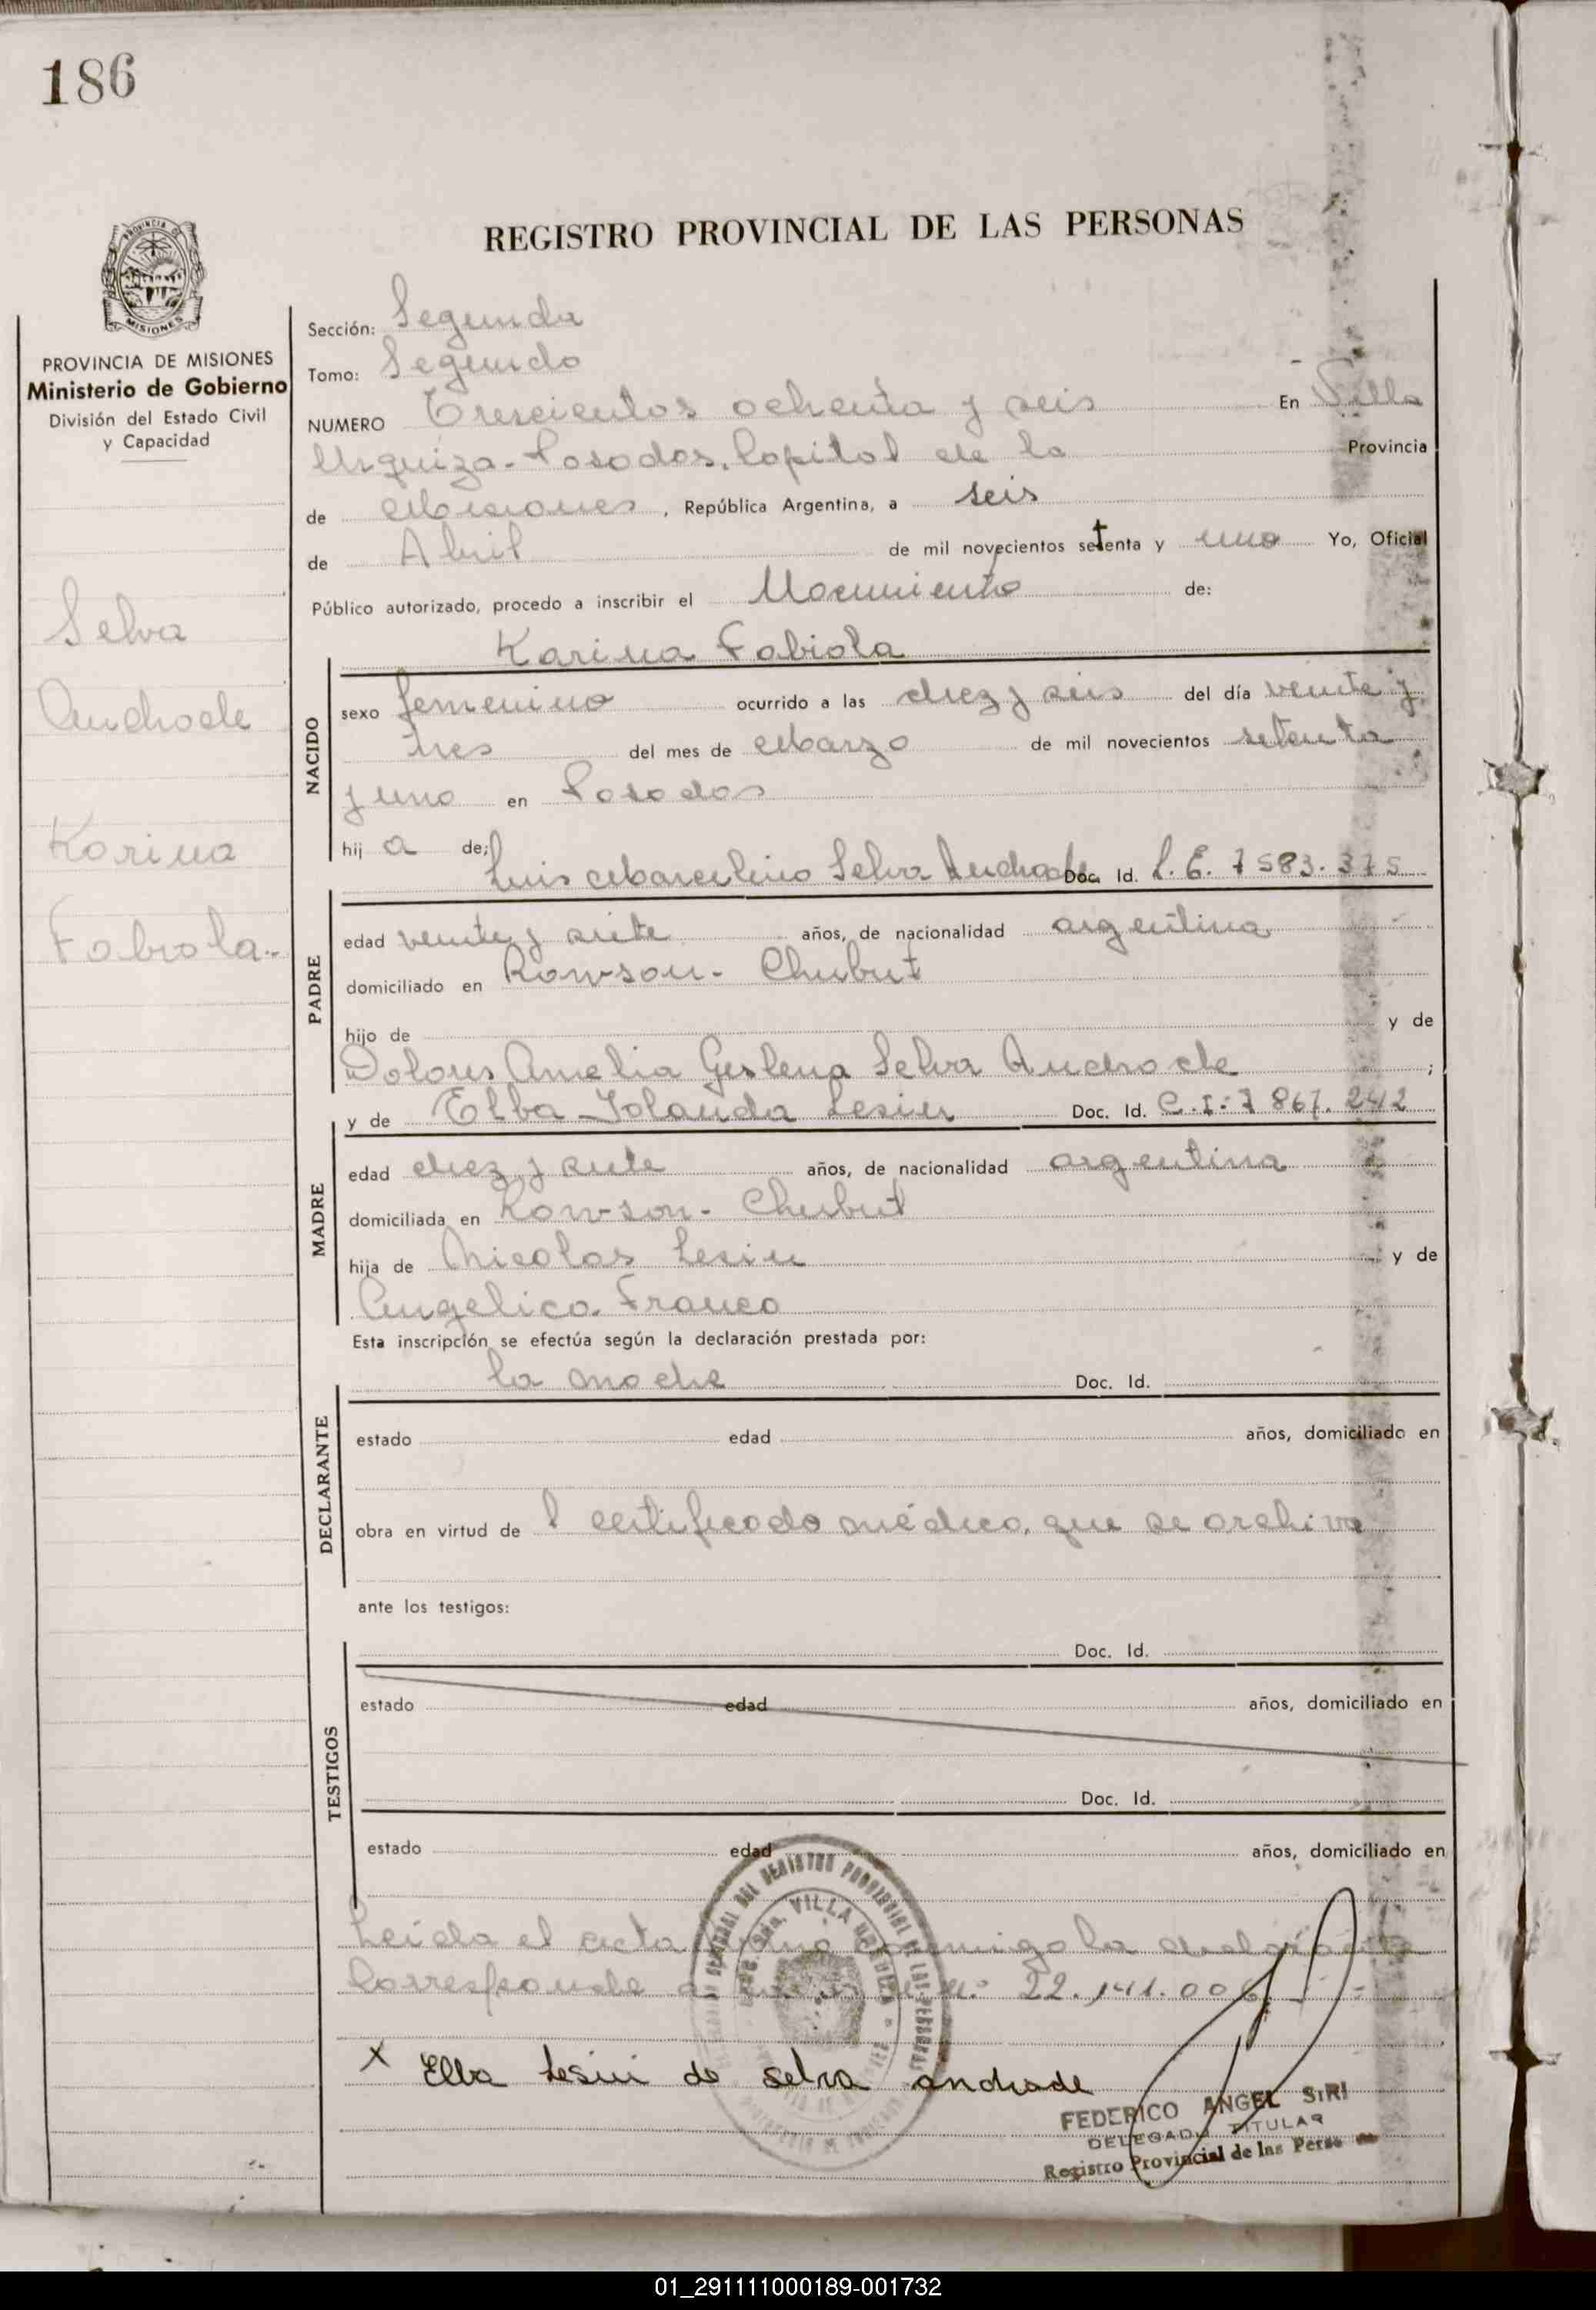 186
REGISTRO PROVINCIAL DE LAS PERSONAS
PROVINCIA DE MISIONES
Ministerio de Gobierno
División del Estado Civil
y Capacidad
Selva
Andrade
Karina
Fabiola.-
Sección: Segunda
Tomo: Segundo
NUMERO Trescientos ochenta y seis En Villa
Urquiza-Posadas, Capital de la Provincia
de Misiones, República Argentina, a seis
de Abril de mil novecientos setenta y uno Yo, Oficial
Público autorizado, procedo a inscribir el Nacimiento de:
Karina Fabiola
NACIDO
sexo femenino ocurrido a las diez y seis del día veinte y
tres del mes de Marzo de mil novecientos setenta
y uno en Posadas
hij a de;
Luis Marcelino Selva Andrade Doc. Id. L.E. 7583.375
PADRE
edad veinte y siete años, de nacionalidad argentina
domiciliado en Rawson- Chubut
hijo de y de
Dolores Amelia Geslena Selva Andrade ;
y de Elba Yolanda Lesiu Doc. Id. C.I: 7 867.242
MADRE
edad diez y siete años, de nacionalidad argentina
domiciliada en Rawson- Chubut
hija de Nicolas Lesiu y de
Angelica Franco
Esta inscripción se efectúa según la declaración prestada por:
la madre Doc. Id.
DECLARANTE
estado edad años, domiciliado en
obra en virtud de l certificado médico que se archiva
ante los testigos:
Doc. Id.
TESTIGOS
estado edad años, domiciliado en
Doc. Id.
estado edad años, domiciliado en
Leida el acta firma conmigo la declarante
Corresponde a N.º 22.141.006
X Elba Lesiu de selva andrade
FEDERICO ANGEL SIRI
DELEGADO TITULAR
Registro Provincial de las Perso
01_291111000189-001732